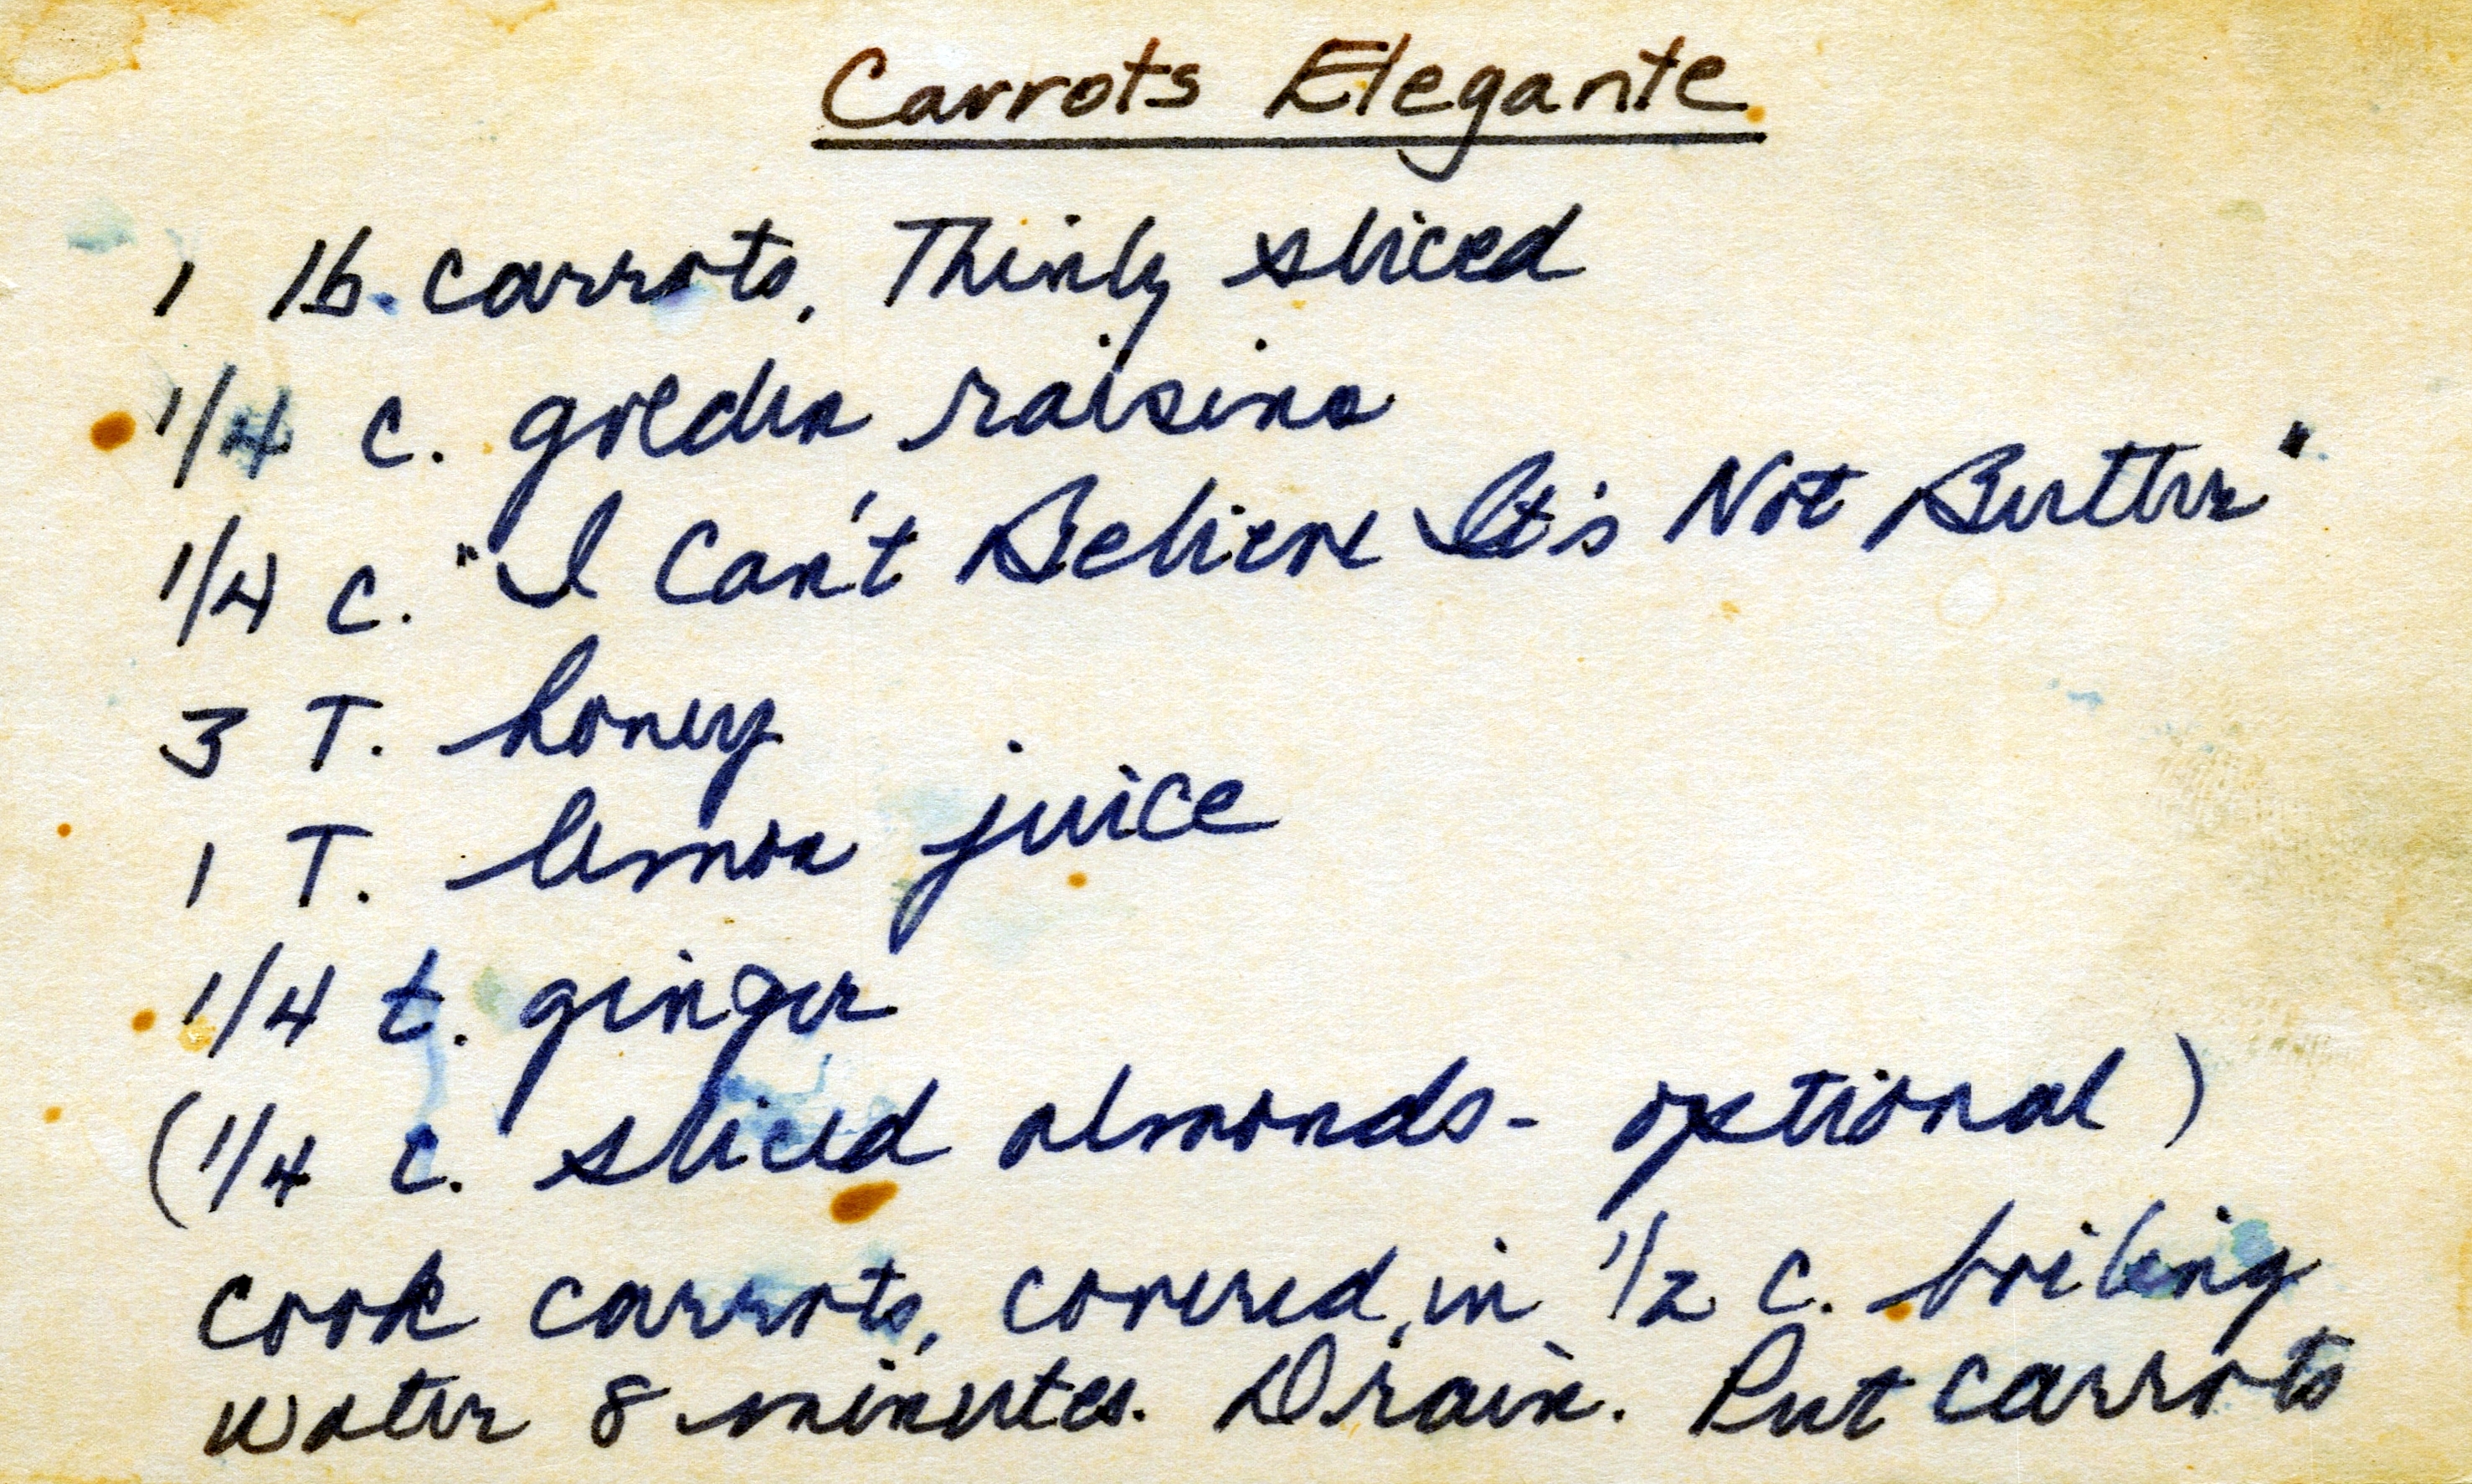 Carrots Elegante
1 lb. carrots, Thinly sliced
1/4 c. golden raisins
1/4 c. "I Can't Believe It's Not Butter"
3 T. honey
1 T. lemon juice
1/4 t. ginger
(1/4 c. sliced almonds - optional)
Cook carrots, covered, in 1/2 c. boiling
water 8 minutes. Drain. Put carrots